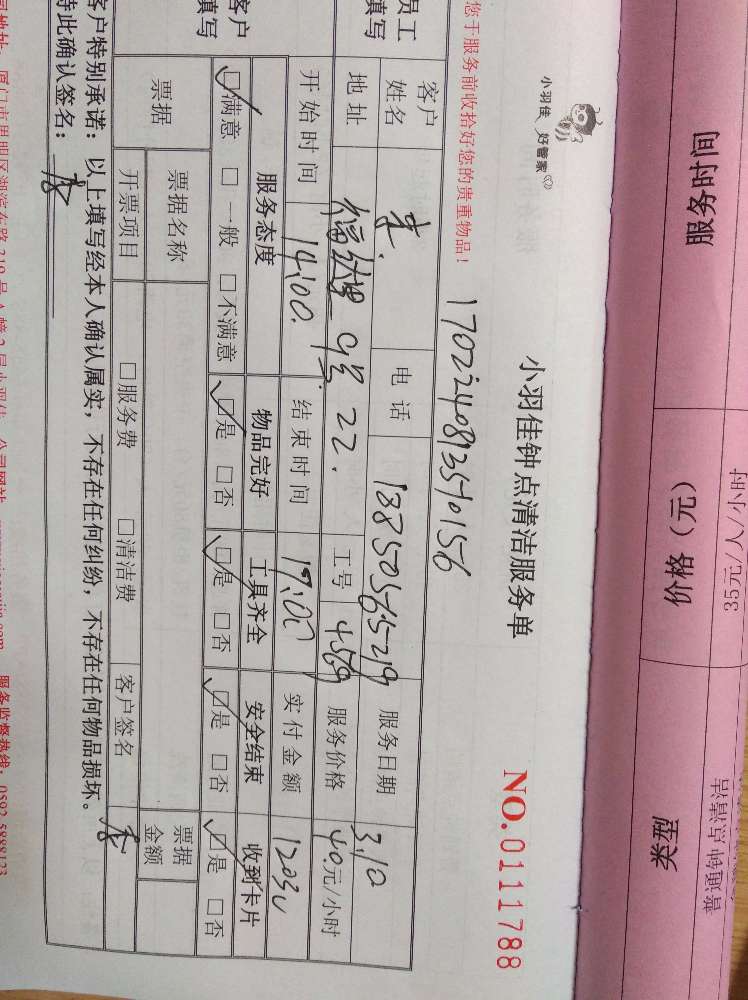 服务时间 价格（元） 类型
35元/人/小时 普通钟点清洁
小羽佳 好管家
小羽佳钟点清洁服务单 NO.0111788
您于服务前收拾好您的贵重物品！
员工填写
客户姓名 电话 13850365219 服务日期 3.10
地址 工号 4569 服务价格 40元/小时
开始时间 14:00. 结束时间 17:00 实付金额 120
客户填写
服务态度 物品完好 工具齐全 安全结束 收到卡片
☑满意 □一般 □不满意 ☑是 □否 ☑是 □否 ☑是 □否 ☑是 □否
票据 票据名称 票据金额
开票项目 □服务费 □清洁费 客户签名
客户特别承诺：以上填写经本人确认属实，不存在任何纠纷，不存在任何物品损坏。
特此确认签名：
服务监督热线：0592-5888123